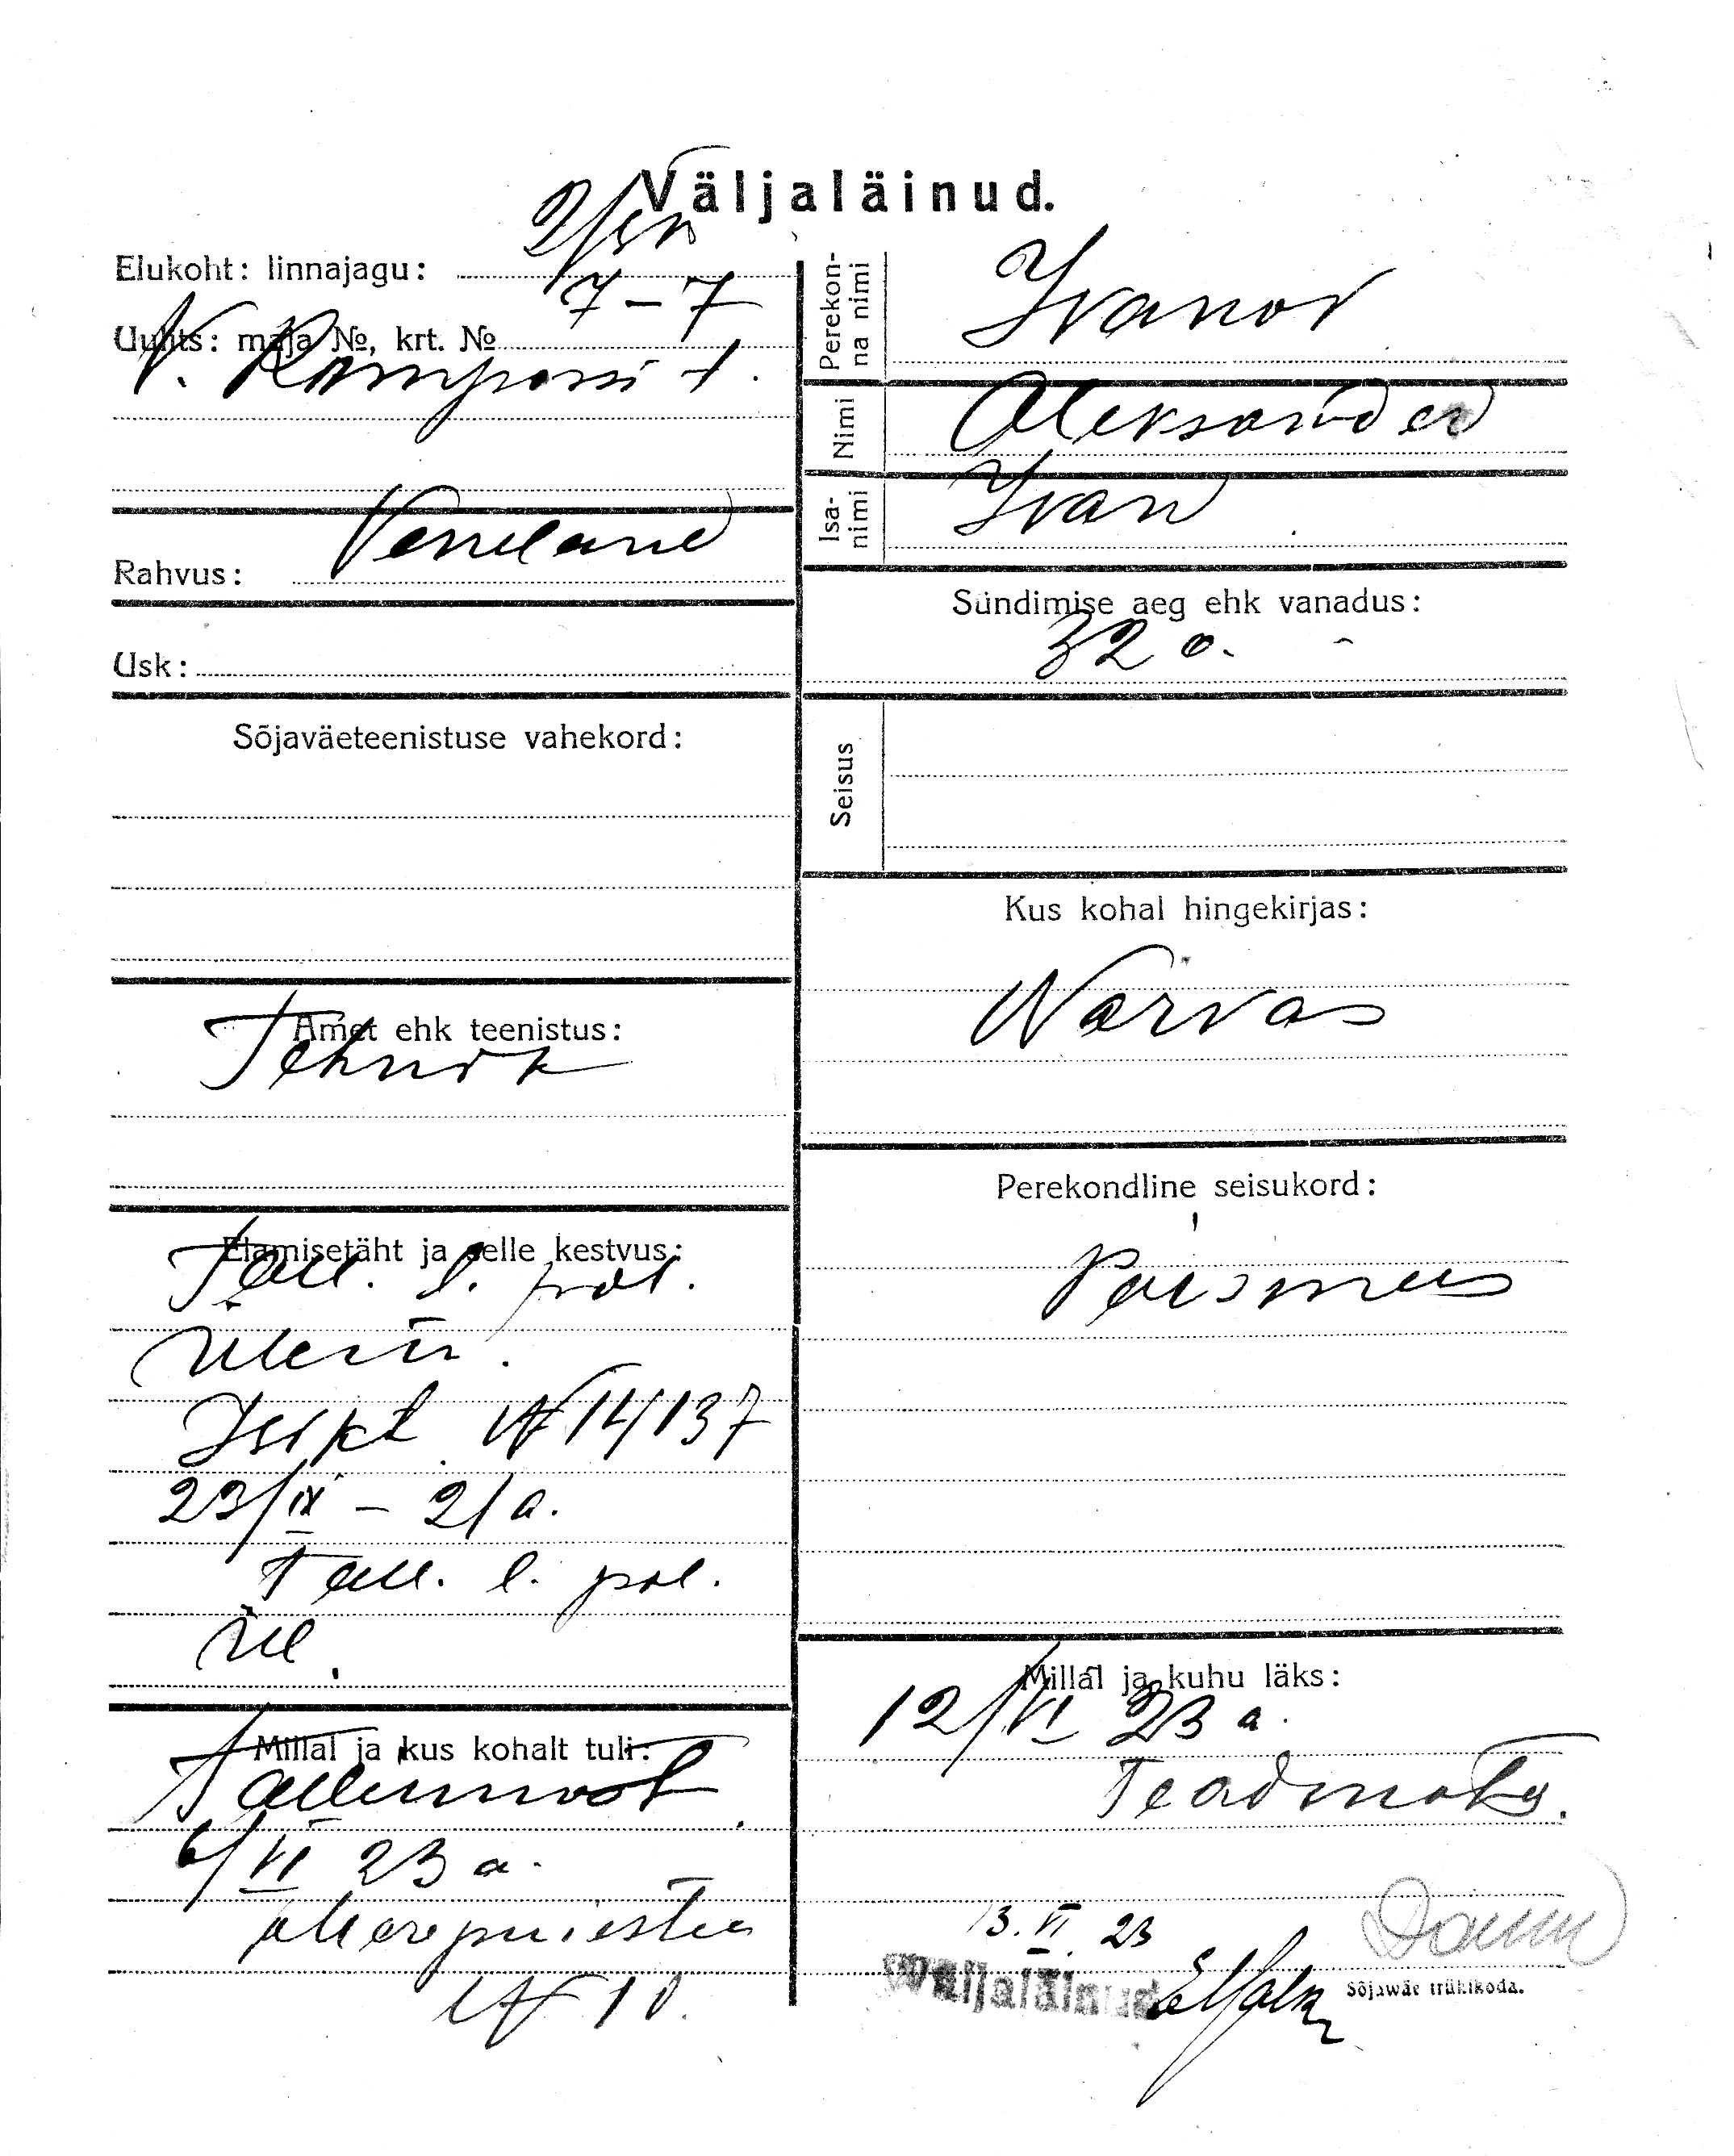 Väljaläinud.
Elukoht: linnajagu:
Uulits: maja №, krt. № 7–7
V. Kompassi t.
Rahvus: Venelane
Usk:
Sõjaväeteenistuse vahekord:
Amet ehk teenistus:
Tehnik
Elamisetäht ja selle kestvus:
Tall. l. pol.
ülem.
Isikt № 14137
23/IX – 21 a.
Tall. l. pol.
ül.
Millal ja kus kohalt tuli:
Tallinnast
6/VI 23 a.
Merepuiestee
№ 10.
Perekonna nimi
Ivanov
Nimi
Aleksander
Isanimi
Ivan
Sündimise aeg ehk vanadus:
32 a.
Seisus
Kus kohal hingekirjas:
Narvas
Perekondline seisukord:
Poismees
Millal ja kuhu läks:
12/VI 23 a.
Teadmata.
13. VI. 23
Väljaläinud
Sõjawäe trükikoda.